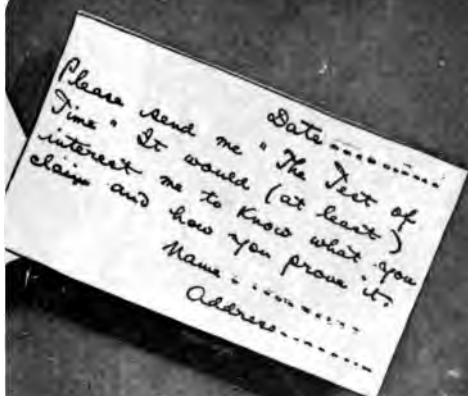 Date..............
Please send me "The Test of
Time." It would (at least)
interest me to know what you
claim and how you prove it.
Name..............
Address..............